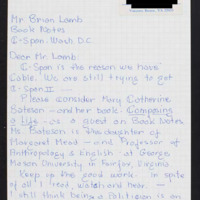 Mr. Brian Lamb
Book Notes
C-Span. Wash. D.C.
Dear Mr. Lamb:
C-Span is the reason we have
Cable. We are still trying to get
C-Span II —
Please consider Mary Catherine
Bateson – and her book: Composing
a Life – as a guest on Book Notes.
Ms. Bateson is the daughter of
Margaret Mead – and Professor of
Anthropology & English at George
Mason University in Fairfax, Virginia.
Keep up the good work. In spite
of all I read, watch and hear —
I still think being a Politician is an